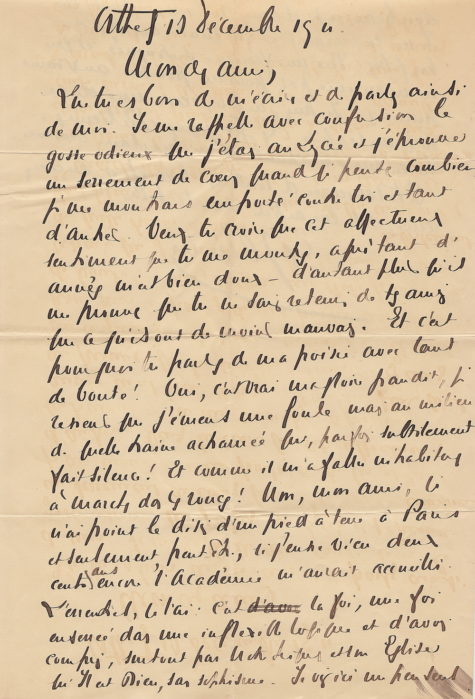 13 Décembre 19
Mon cher ami,
Tu es bon de m'écrire et de parler ainsi
de moi. Je me rappelle avec confusion le
gosse odieux que j'étais au Lycée et j'éprouve
un serrement de cœur quand je pense combien
je me montrais emporté contre toi et tant
d'autres. Veux-tu croire que cet affectueux
sentiment que tu me montres, après tant d'
années m'est bien doux — d'autant plus qu'il
me prouve que tu ne sais retenir de tes amis
que ce qu'ils ont de moins mauvais. Et c'est
pourquoi tu parles de ma poésie avec tant
de bonté! Oui, c'est vrai ma gloire grandit, je
ressens que j'émeus une foule mais au milieu
de quelle haine acharnée qui, parfois subitement
fait silence! Et comme il m'a fallu m'habituer
à marcher dans les ronces! Non, mon ami, je
n'ai point le désir d'un pied à terre à Paris
et seulement peut-être, si j'en vie deux
cents ans encore l'Académie m'aurait accueilli.
L'essentiel, je l'ai: c'est la foi, une foi
dans une inflexible logique et d'avoir
compris, surtout par et son Eglise
qu'Il est Dieu, sans sophisme. Je